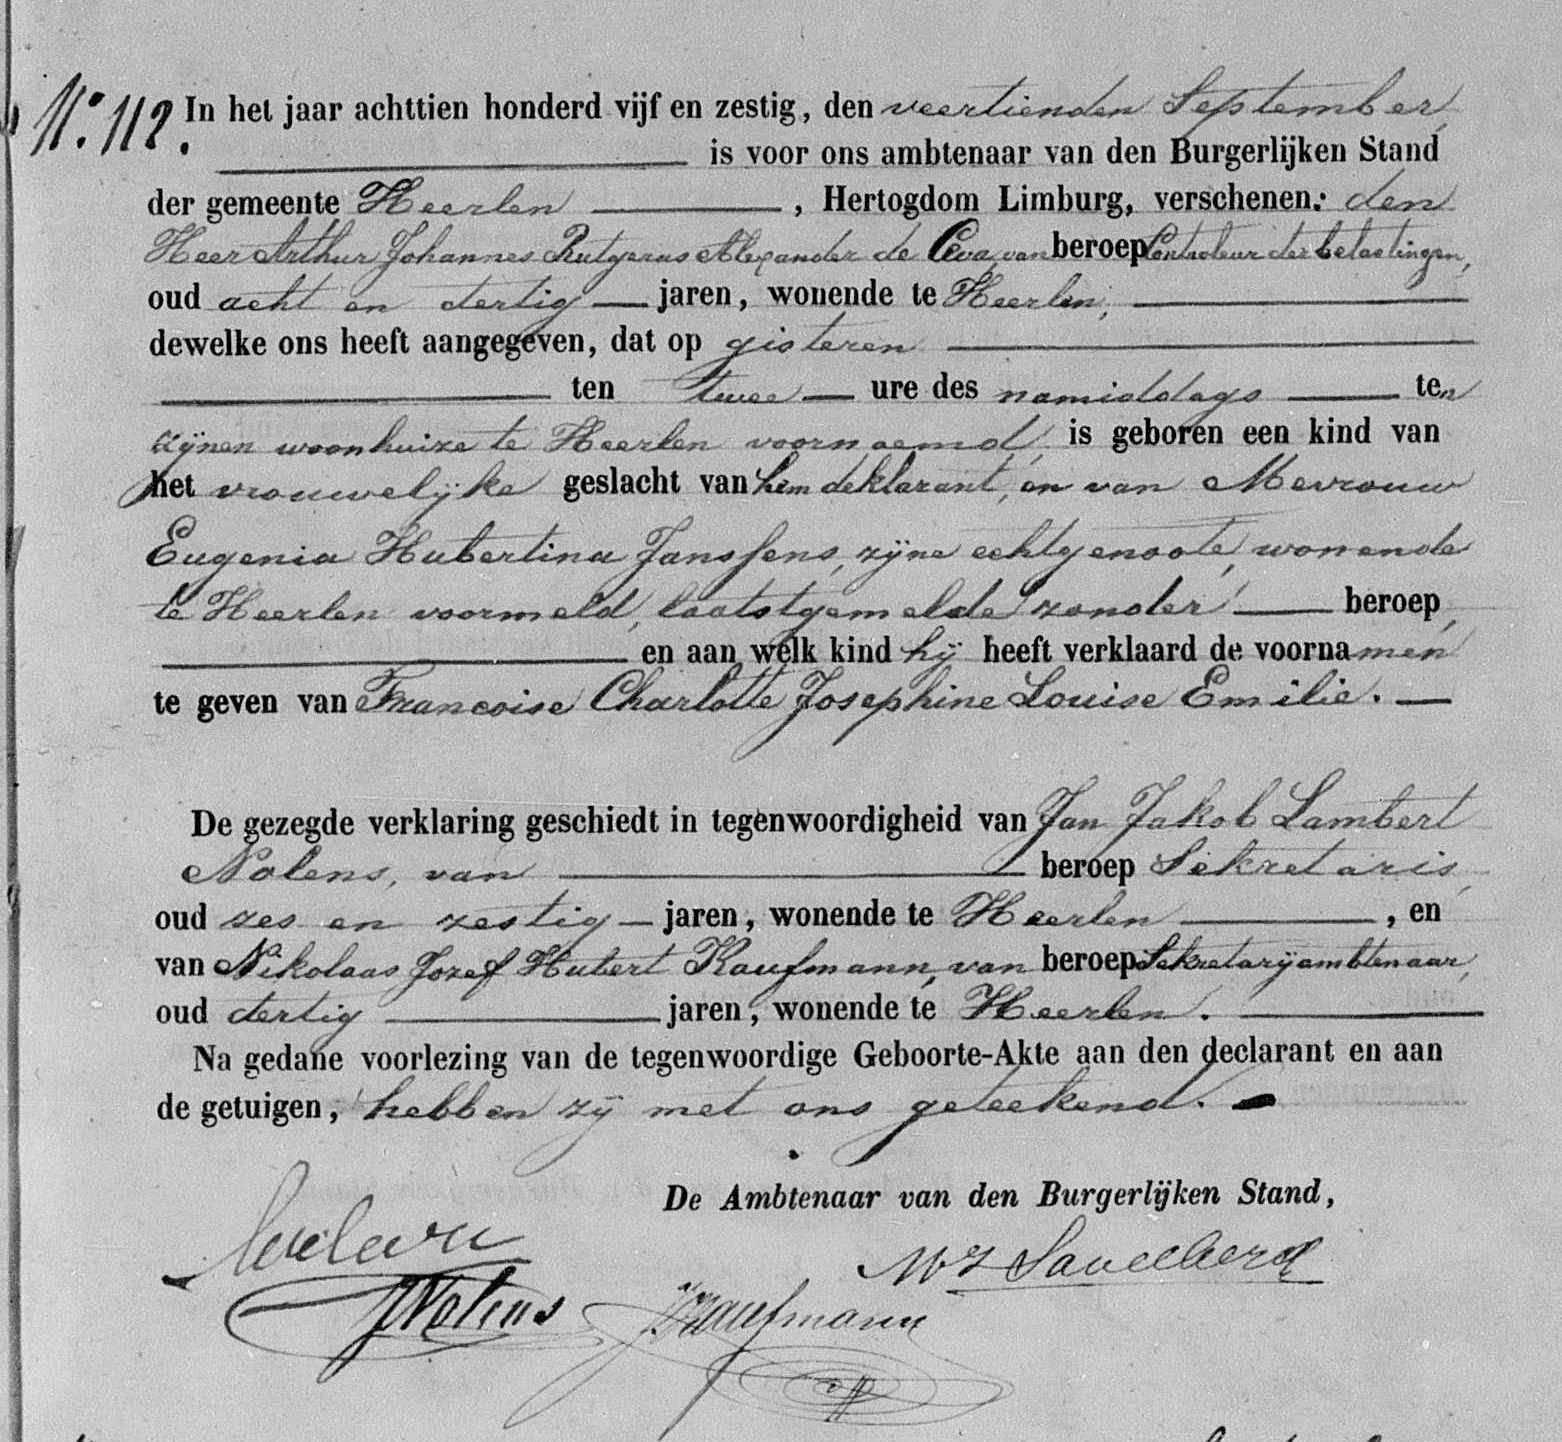 N.º 112. In het jaar achttien honderd vijf en zestig, den veertienden September,
is voor ons ambtenaar van den Burgerlijken Stand
der gemeente Heerlen, Hertogdom Limburg, verschenen: den
Heer Arthur Johannes Rutgerus Alexander de Ceva, van beroep Controleur der belastingen,
oud acht en dertig jaren, wonende te Heerlen,
dewelke ons heeft aangegeven, dat op gisteren
ten twee ure des namiddags ten
zijnen woonhuize te Heerlen voornoemd, is geboren een kind van
het vrouwelijke geslacht van hem deklarant, en van Mevrouw
Eugenia Hubertina Janssens, zijne echtgenoote, wonende
te Heerlen voormeld, laatstgemelde zonder beroep,
en aan welk kind hij heeft verklaard de voornamen
te geven van Francoise Charlotte Josephine Louise Emilie.
De gezegde verklaring geschiedt in tegenwoordigheid van Jan Jakob Lambert
Nolens, van beroep Sekretaris,
oud zes en zestig jaren, wonende te Heerlen, en
van Nikolaas Jozef Hubert Kaufmann, van beroep Sekretarijambtenaar,
oud dertig jaren, wonende te Heerlen.
Na gedane voorlezing van de tegenwoordige Geboorte-Akte aan den declarant en aan
de getuigen, hebben zij met ons geteekend.
De Ambtenaar van den Burgerlijken Stand,
Savelberg
Nolens
Kaufmann